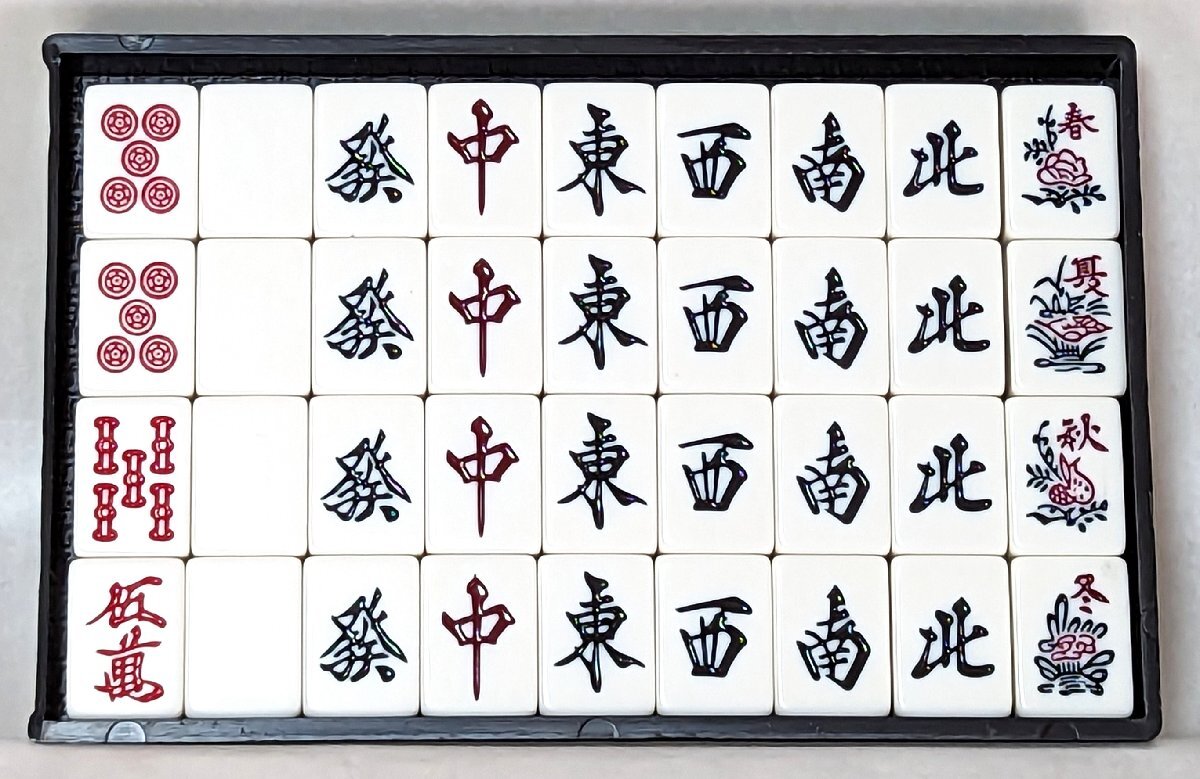 發 中 東 西 南 北 春
發 中 東 西 南 北 夏
發 中 東 西 南 北 秋
伍萬 發 中 東 西 南 北 冬